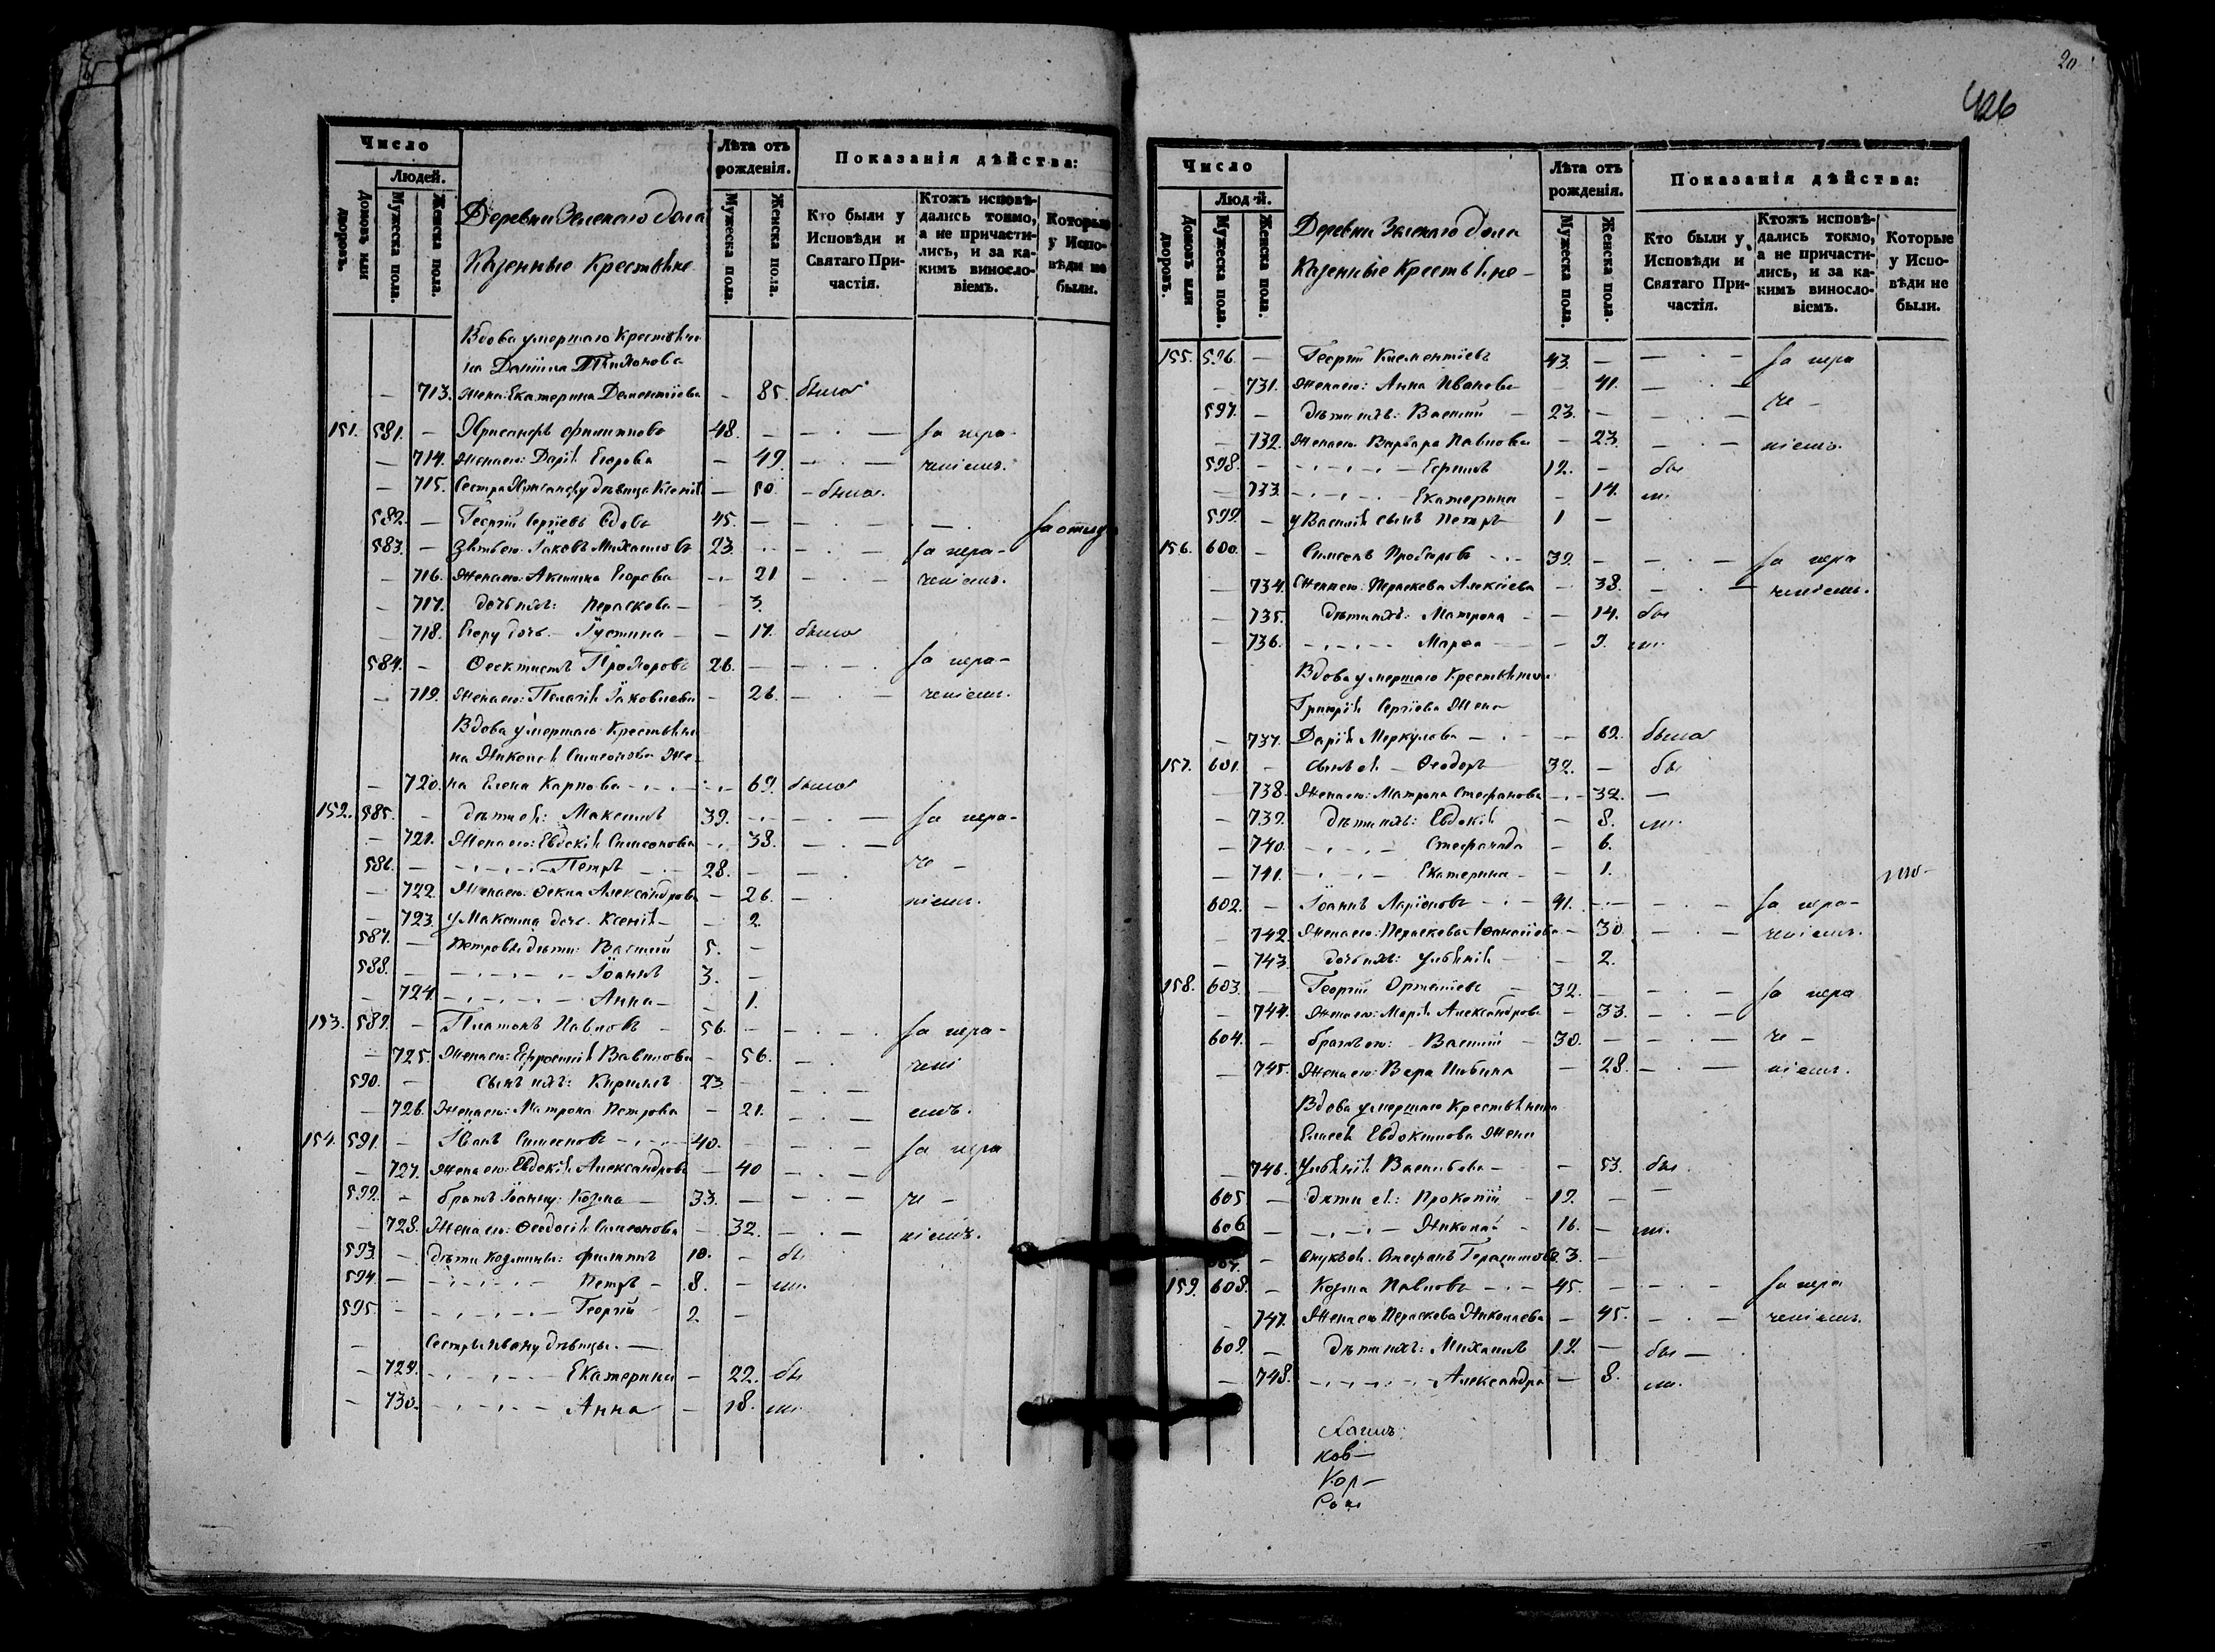 Число
Людей.
Домовъ или дворовъ.
Мужеска пола.
Женска пола.
Деревни Зеленаго дола
Казенные Крестьяне
Лѣта отъ рожденія.
Мужеска пола.
Женска пола.
Показанія дѣйства:
Кто были у Исповѣди и Святаго Причастія.
Ктожъ исповѣдались токмо, а не причастились, и за какимъ винословіемъ.
Которые у Исповѣди не были.
Вдова умершаго Крестьяни
на Даніила Тихонова
— 713. жена: Екатерина Дементіева - 85. была
151. 581. — Хрисанфъ Филипповъ 48. — — · — за нера-
— 714. Жена его: Дарія Егорова — 49. — · — ченіемъ.
— 715. Сестра Хрисанфу дѣвица Ксенія — 50. - была.
582. — Георгій Сергіевъ вдовъ 45. — — · — · за отлуч
583. — Зять его: Іаковъ Михаиловъ 23. — · — за нера-
— 716. Жена его: Акилина Егорова 21 — · — ченіемъ.
— 717. дочь ихъ: Параскева — 3.
— 718. Егору дочь — Іустина — — 17. была
584. — Феоктистъ Прохоровъ 26. — — · — · за нера-
— 719. Жена его: Пелагія Іаковлева — 26. — · — ченіемъ.
Вдова умершаго Крестьяни
на Николая Симеонова Же-
— 720. на Елена Карпова — 69. была
152. 585. — дѣти ея: Максимъ 39. — · — за нера-
— 721. Жена его: Евдокія Симеонова 38. — · —
586. — — Петръ 28. — — · че —
— 722. Жена его: Фекла Александрова — 26. — · ніемъ.
— 723. у Максима дочь Ксенія — — 2.
587. — Петровы дѣти: Василій 5. —
588. — — Іоаннъ 3. —
— 724. — Анна — 1.
153. 589. — Платонъ Павловъ — 56. — — · — · за нера-
— 725. Жена его: Ефросинія Вавилова — 56. — · чені
590. — Сынъ ихъ: Кириллъ 23 — — · —
— 726. Жена его: Матрона Петрова — 21. — · — емъ.
154. 591. — Иванъ Симеоновъ — 40. — — · — за нера
— 727. Жена его: Евдокія Александрова — 40 — · —
592. — братъ Іоанну: Козма — 33. — — · — че —
— 728. Жена его: Феодосія Симеонова — 32. — · — ніемъ.
593. — дѣти Козмины: Филиппъ 10. — бы
594. — — Петръ — 8. — ли.
595. — — Георгій 2. —
— Сестры Ивану дѣвицы. —
— 729. — Екатерина — 22. бы
— 730. — Анна — 18. ли.
20
426
Число
Людей.
Домовъ или дворовъ.
Мужеска пола.
Женска пола.
Деревни Зеленаго дола
Казенные Крестьяне —
Лѣта отъ рожденія.
Мужеска пола.
Женска пола.
Показанія дѣйства:
Кто были у Исповѣди и Святаго Причастія.
Ктожъ исповѣдались токмо, а не причастились, и за какимъ винословіемъ.
Которые у Исповѣди не были.
155. 596. — Георгій Климентіевъ 43. — — · — за нера
— 731. Жена его: Анна Иванова — 41. — · —
597. — дѣти ихъ: Василій — 23. — — · — че —
— 732. Жена его Варвара Павлова — 23. — · — ніемъ.
598. — — 12. — бы
— 733. — Екатерина — 14. ли.
599. — у Василія сынъ Петръ 1 —
156. 600. — Симеонъ — 39. — — · — за нера
— 734. Жена его: Параскева Алексіева — 38. — · — ченіемъ.
— 735. дѣти ихъ: Матрона — — 14. бы
— 736. — Марѳа — 9. ли.
Вдова умершаго Крестьянина
Григорія Сергіева Жена
— 737. Дарія Меркулова — 62. была
157. 601. — сынъ ея — Феодоръ 32. — бы
— 738. Жена его: Матрона Стефанова — 32. —
— 739. дѣти ихъ: Евдокія — 8. ли.
— 740. — Стефанида — 6.
— 741. — Екатерина — — 1.
602. — Іоаннъ Ларіоновъ — 41. — — · — за нера-
— 742. Жена его: Параскева Аѳанасіева — 30. — · — ченіемъ.
— 743 дочь ихъ: Уліянія — — 2.
158. 603. — Георгій — 32. — — · — за нера
— 744. Жена его: Марія Александрова — 33. — · —
604. — братъ его: Василій — 30. — — · — че —
— 745. Жена его: Вера — 28. — · — ніемъ.
Вдова умершаго Крестьянина
Елисея Евдокимова Жена
— 746. Уліянія Васильева — — 53. бы
605 — дѣти ея: Прокопій — 19. — —
606 — — Николай — 16. — ли.
607. — внукъ ея. Стефанъ Герасимовъ 3. —
159. 608. — Козма Павловъ — 45. — — · — за нера
— 747. Жена его Параскева Николаева — 45. — · — ченіемъ.
609. — дѣти ихъ: Михаилъ 12. — бы —
— 748. — Александра — 8. ли.
ков—
Кор—